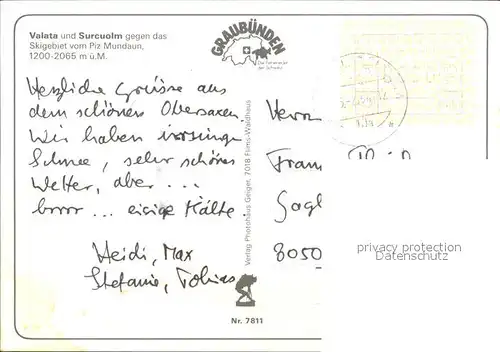 Valata und Surcuolm gegen das
Skigebiet vom Piz Mundaun,
1200-2065 m ü.M.
GRAUBÜNDEN
Die Ferienecke
der Schweiz
Herzliche Grüsse aus
dem schönen Obersaxen.
Wir haben
Schnee, sehr schönes
Wetter, aber ...
brrrr ... eisige Kälte.
Heidi, Max
Stefanie, Tobias
Verlag Photohaus Geiger, 7018 Flims-Waldhaus
Nr. 7811
Herrn
8050
privacy protection
Datenschutz